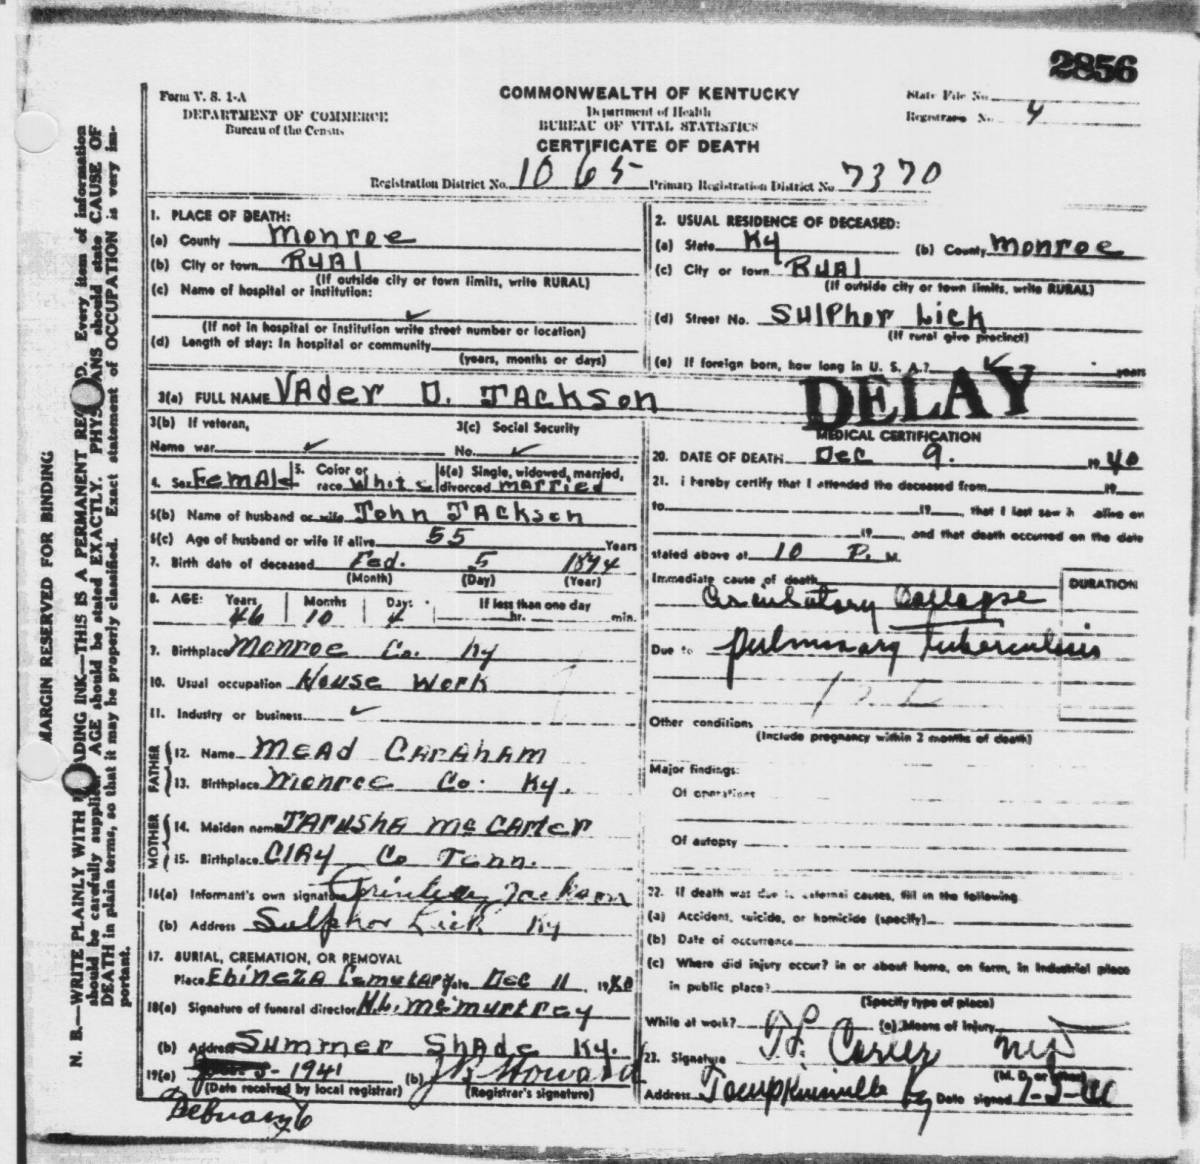 2856
Form V. S. 1-A
DEPARTMENT OF COMMERCE
Bureau of the Census
COMMONWEALTH OF KENTUCKY
Department of Health
BUREAU OF VITAL STATISTICS
CERTIFICATE OF DEATH
State File No.
Registrars No. 4
Registration District No. 1065 Primary Registration District No. 7370
MARGIN RESERVED FOR BINDING
N. B.—WRITE PLAINLY WITH ADING INK—THIS IS A PERMANENT RE D. Every item of information
should be carefully supplie AGE should be stated EXACTLY. PHYS ANS should state CAUSE OF
DEATH in plain terms, so that it may be properly classified. Exact statement of OCCUPATION is very im-
portant.
1. PLACE OF DEATH:
(a) County Monroe
(b) City or town RUAl
(If outside city or town limits, write RURAL)
(c) Name of hospital or institution:
(If not in hospital or institution write street number or location)
(d) Length of stay: In hospital or community
(years, months or days)
2. USUAL RESIDENCE OF DECEASED:
(a) State Ky (b) County Monroe
(c) City or town RUAl
(If outside city or town limits, write RURAL)
(d) Street No. Sulphor Lick
(If rural give precinct)
(e) If foreign born, how long in U. S. A.? years
3(a) FULL NAME Vader D. Jackson
DELAY
3(b) If veteran, 3(c) Social Security
Name war No.
4. Sex Female 5. Color or race White 6(a) Single, widowed, married, divorced married
5(b) Name of husband or wife John Jackson
6(c) Age of husband or wife if alive 55 Years
7. Birth date of deceased Feb. 5 1894
(Month) (Day) (Year)
8. AGE: Years Months Days If less than one day
46 10 4 hr. min.
9. Birthplace Monroe Co. Ky
10. Usual occupation House Work
11. Industry or business
FATHER
12. Name Mead Caraham
13. Birthplace Monroe Co. Ky.
MOTHER
14. Maiden name Tarusha McCarter
15. Birthplace Clay Co Tenn.
16(a) Informant's own signature Jackson
(b) Address Sulphor Lick Ky
17. BURIAL, CREMATION, OR REMOVAL
Place Ebineza Cemutary Date Dec 11 1940
18(a) Signature of funeral director H.L. McMurtrey
(b) Address Summer Shade Ky.
19(a) 1941 (b) Howard
(Date received by local registrar) (Registrar's signature)
Febuary 6
MEDICAL CERTIFICATION
20. DATE OF DEATH Dec 9. 1940
21. I hereby certify that I attended the deceased from 19
to 19 , that I last saw h alive on
19 , and that death occurred on the date
stated above at 10 P. M.
Immediate cause of death DURATION
Circulatory Collapse
Due to pulmonary tuberculosis
Other conditions
(Include pregnancy within 2 months of death)
Major findings:
Of operations
Of autopsy
22. If death was due to external causes, fill in the following
(a) Accident, suicide, or homicide (specify)
(b) Date of occurrence
(c) Where did injury occur? in or about home, on farm, in industrial place
in public place?
(Specify type of place)
While at work? (e) Means of injury
23. Signature Carter MD
(M. D. or other)
Address Tompkinsville Ky Date signed